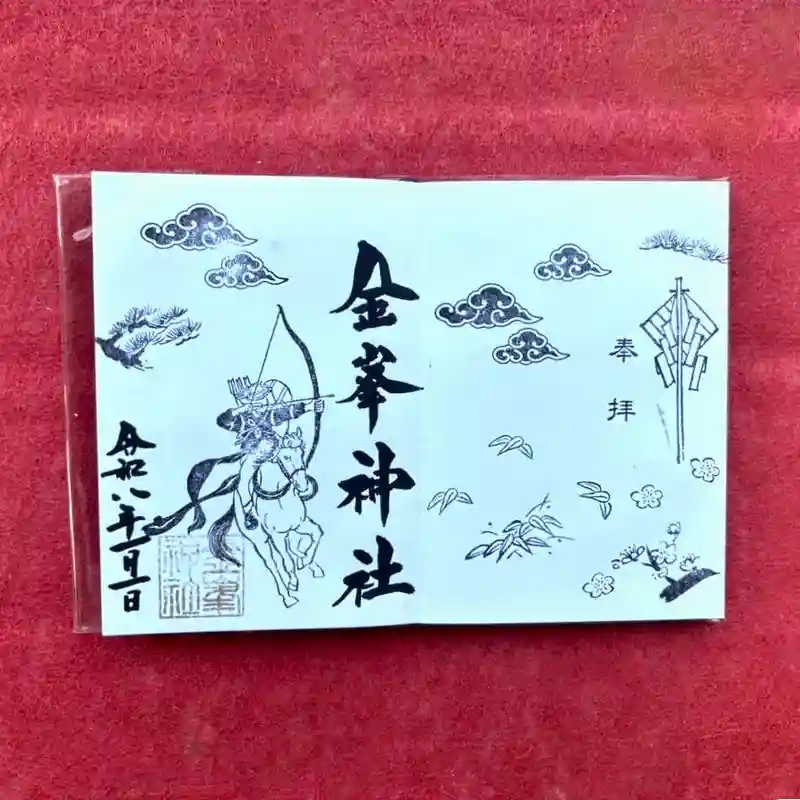 奉拝
金峯神社
令和八年一月一日
金峯
神社